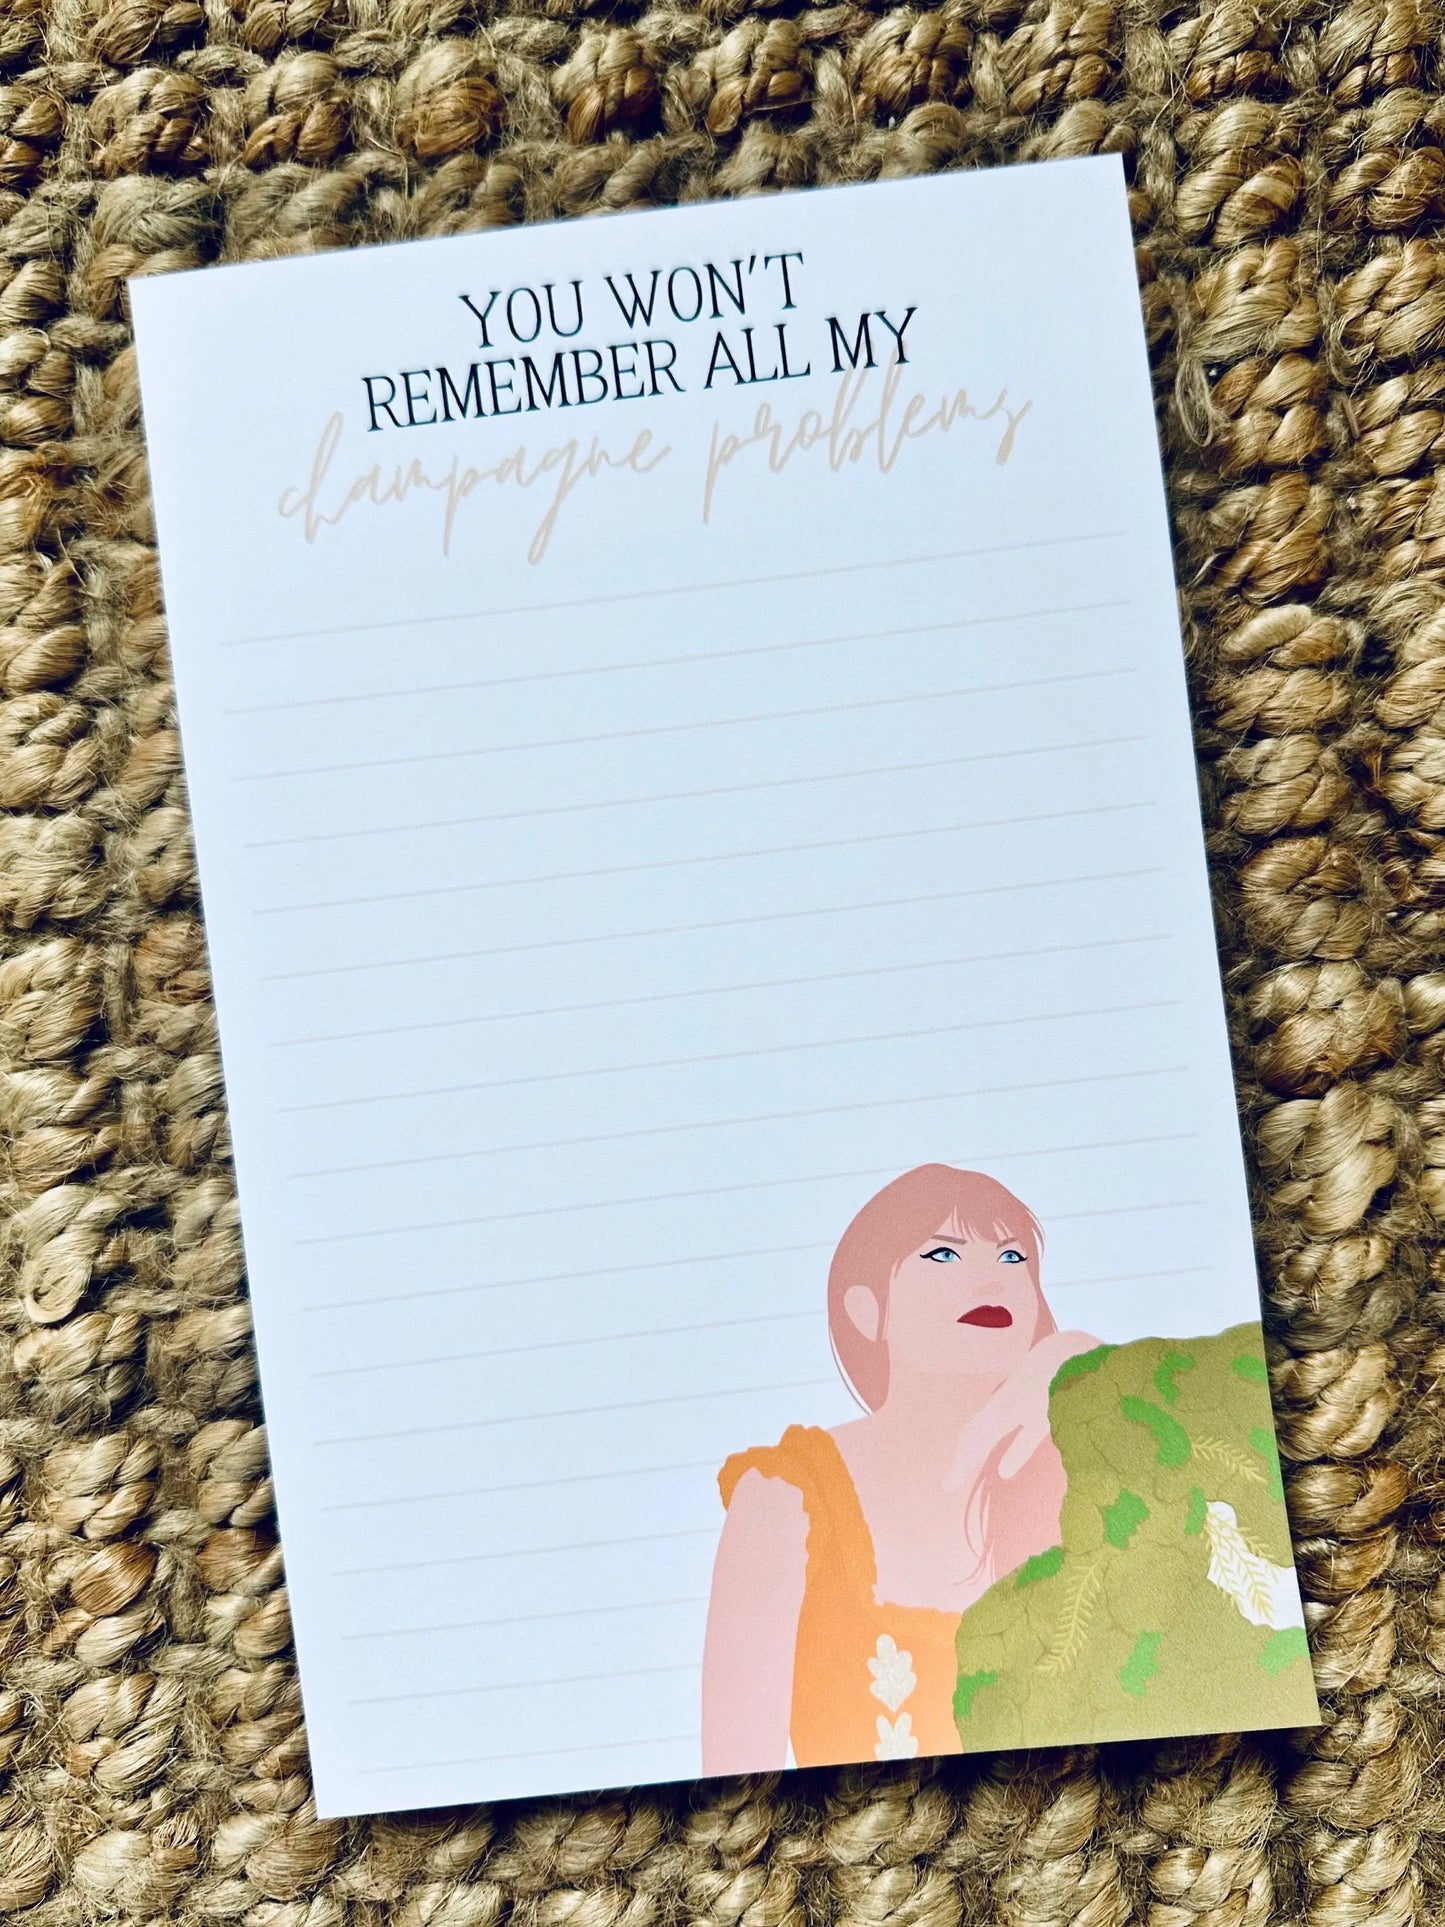 YOU WON'T
REMEMBER ALL MY
champagne problems